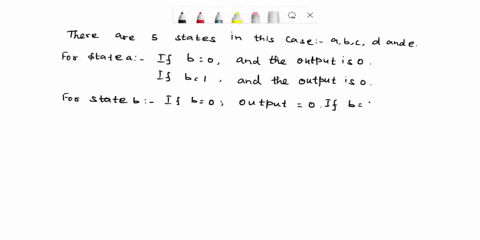 There are 5 states in this case:- a,b,c, d and e.
For state a:- If b=0, and the output is 0.
If b=1, and the output is 0.
For state b:- If b=0, output = 0. If b=